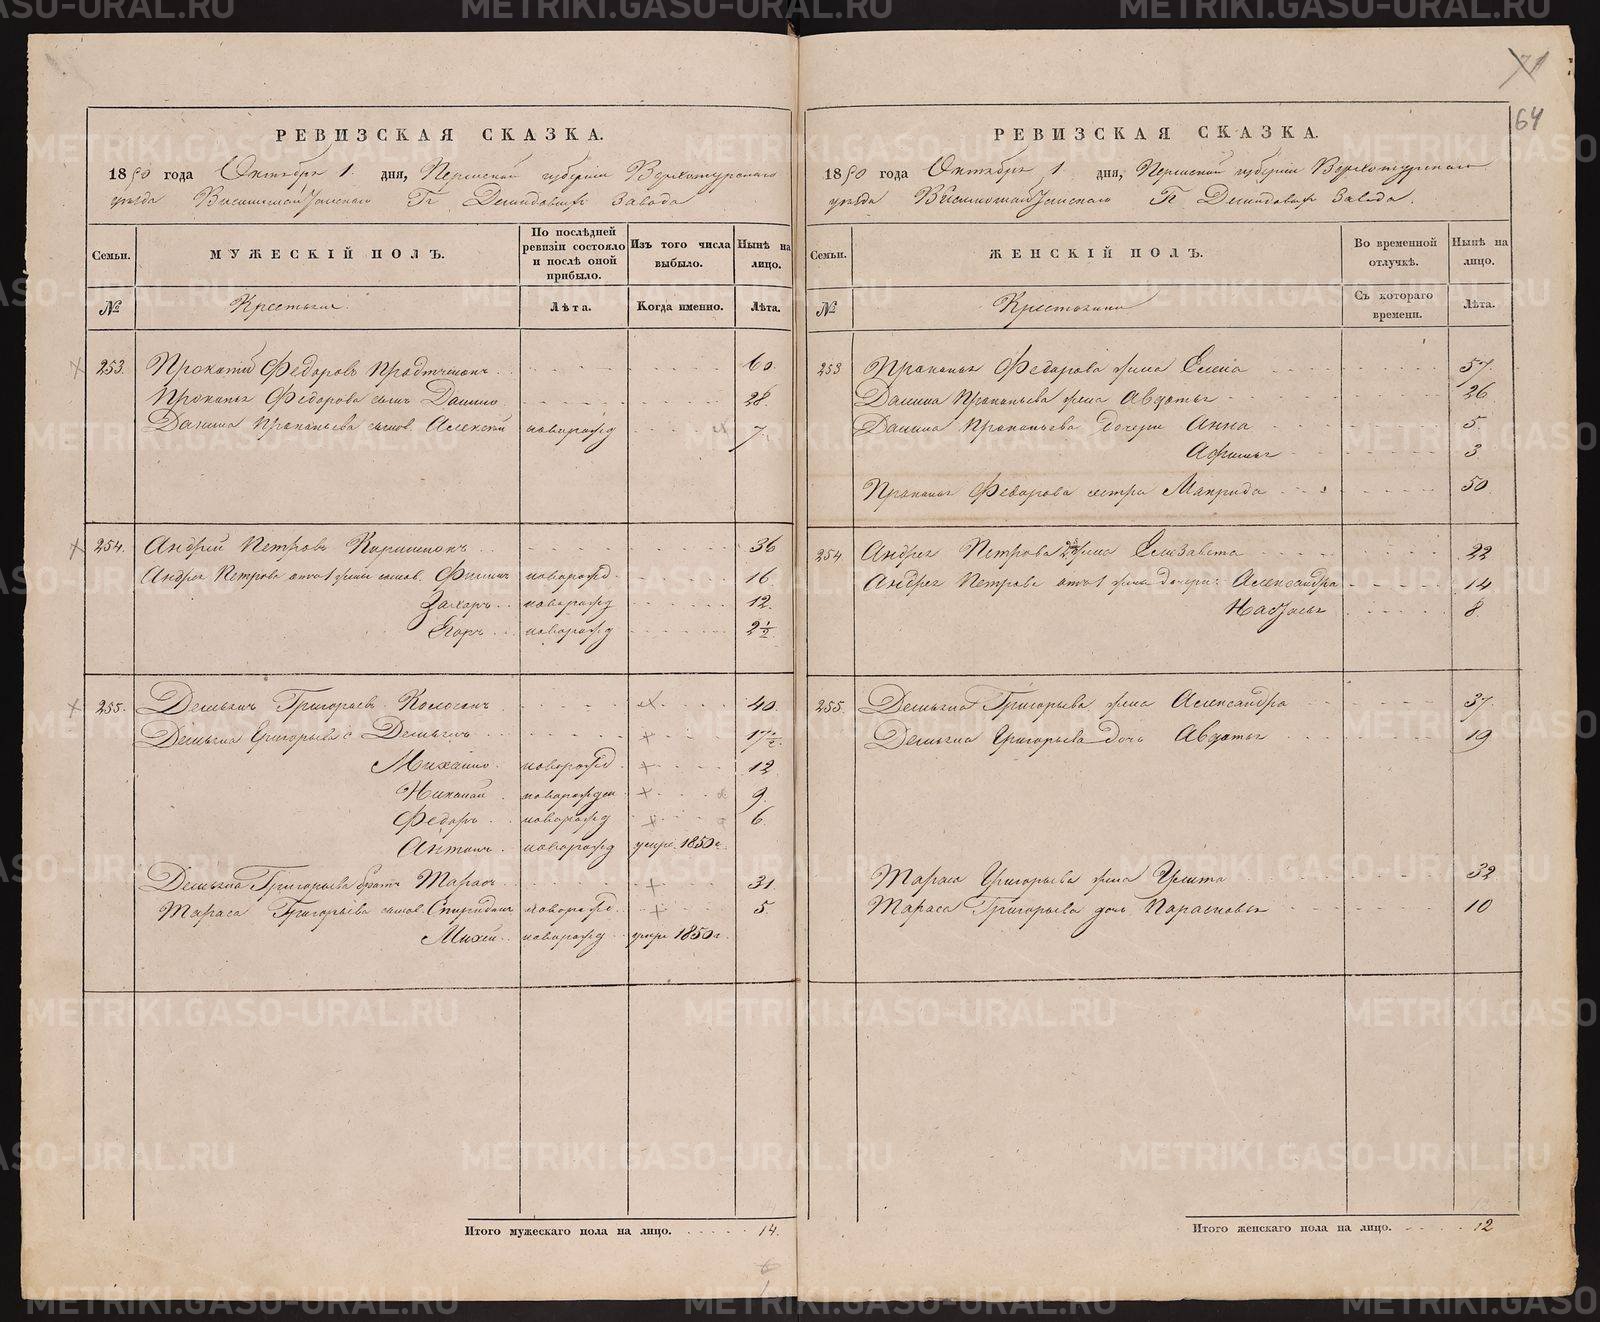 71
64
РЕВИЗСКАЯ СКАЗКА.
1850 года Октября 1 дня, Пермской губернии Верхотурскаго
уезда Висимошайтанскаго Гг Демидовых завода
Семьи.
МУЖЕСКІЙ ПОЛЪ.
По послѣдней ревизіи состояло и послѣ оной прибыло.
Изъ того числа выбыло.
Нынѣ на лицо.
№
Крестьяне.
Лѣта.
Когда именно.
Лѣта.
253. Прокопій Федоровъ 60.
Прокопья Федорова сынъ Данило 28.
Данила Прокопьева сынов. Алексей новорожд 7.
254. Андрей Петровъ 36
Андрея Петрова от 1 жены сынов. Филипъ новорожд 16
Захаръ новорожд 12.
Егоръ новорожд 2 1/2
255. Дементий Григорьевъ 40
Григорьева с 17 1/2
Михайло новорожд 12
Николай новорожден 9.
Федоръ новорожд 6.
Антонъ новорожд умре 1850 г.
Григорьева братъ Тарасъ 31
Тараса Григорьева сынов. Спиридонъ новорожд 5.
Михей новорожд умре 1850 г
Итого мужескаго пола на лицо. 14.
РЕВИЗСКАЯ СКАЗКА.
1850 года Октября 1 дня, Пермской губернии Верхотурскаго
уезда Висимошайтанскаго Гг Демидовых завода.
Семьи.
ЖЕНСКІЙ ПОЛЪ.
Во временной отлучкѣ.
Нынѣ на лицо.
№
Крестьянки
Съ котораго времени.
Лѣта.
253 Прокопья Федорова жена Елена 57.
Данила Прокопьева жена Авдотья 26
Данила Прокопьева дочери Анна 5.
Афимья 3
Прокопья Федорова сестра Макрида 50
254. Андрея Петрова 2я жена Елизавета 22
Андрея Петрова от 1 жены дочери Александра 14
Настасья 8.
255. Григорьева жена Александра 37.
Григорьева дочь Авдотья 19
Тараса Григорьева жена Улита 32
Тараса Григорьева дочь Парасковья 10
Итого женскаго пола на лицо. 12
METRIKI.GASO-URAL.RU